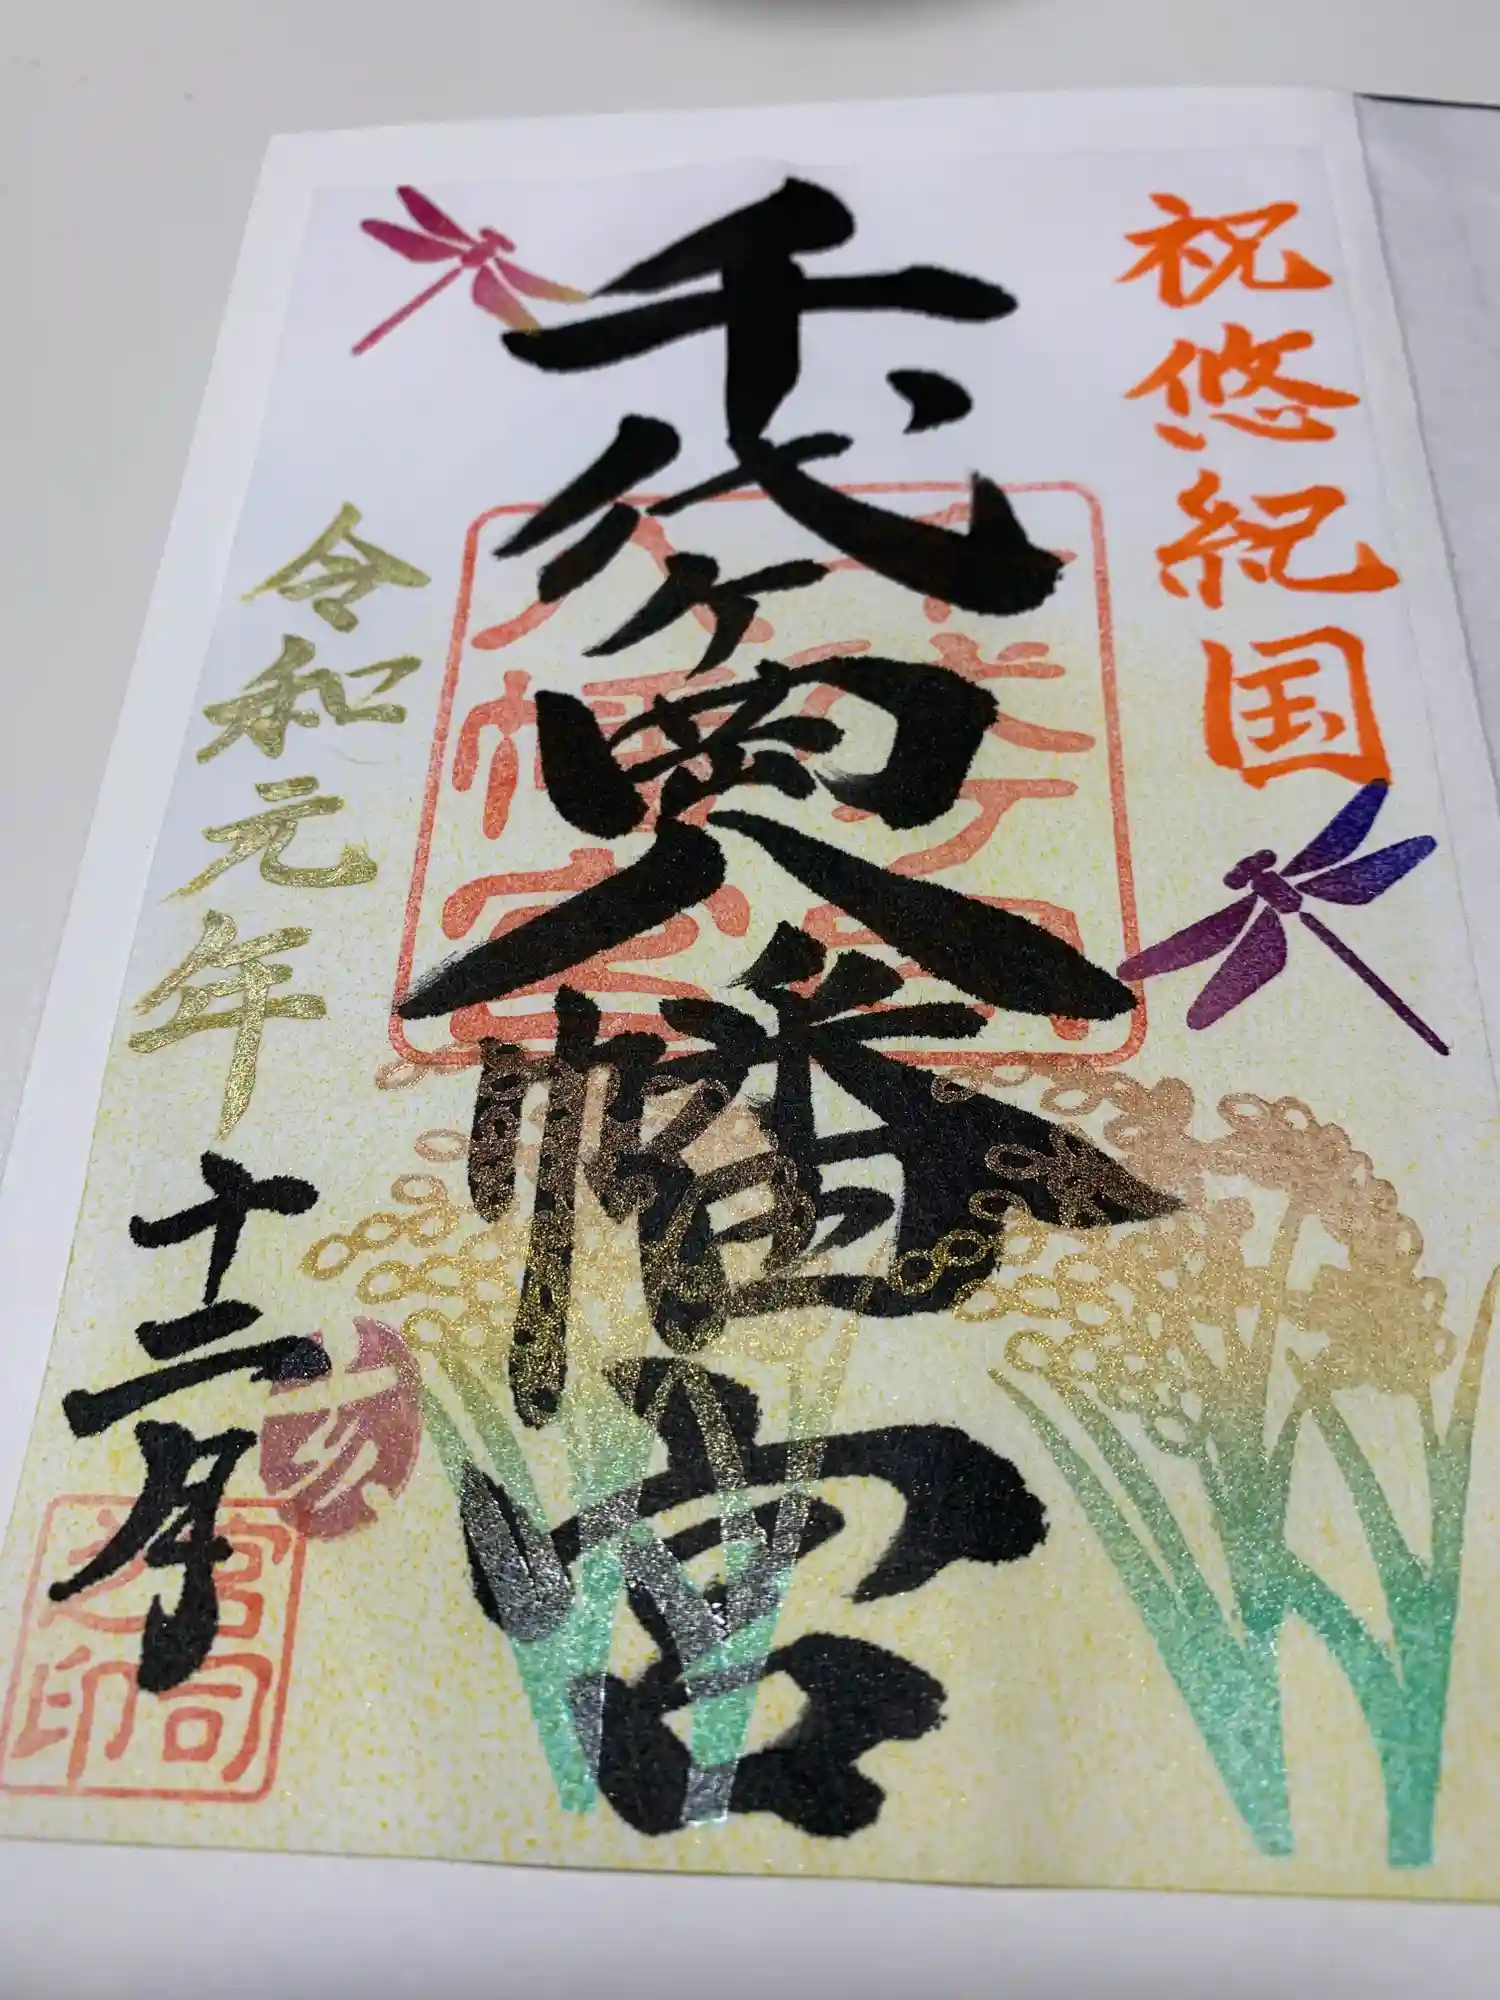 祝悠紀国
千代ヶ岡八幡宮
令和元年十二月
千代ヶ岡
八幡宮
亥
宮司
之印